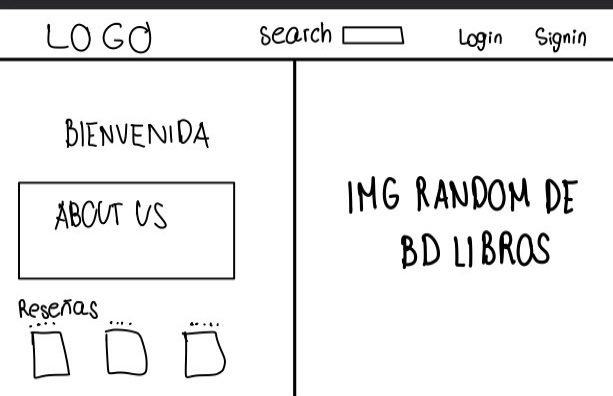 LOGO
search
Login
Signin
BIENVENIDA
ABOUT US
Reseñas
IMG RANDOM DE
BD LIBROS